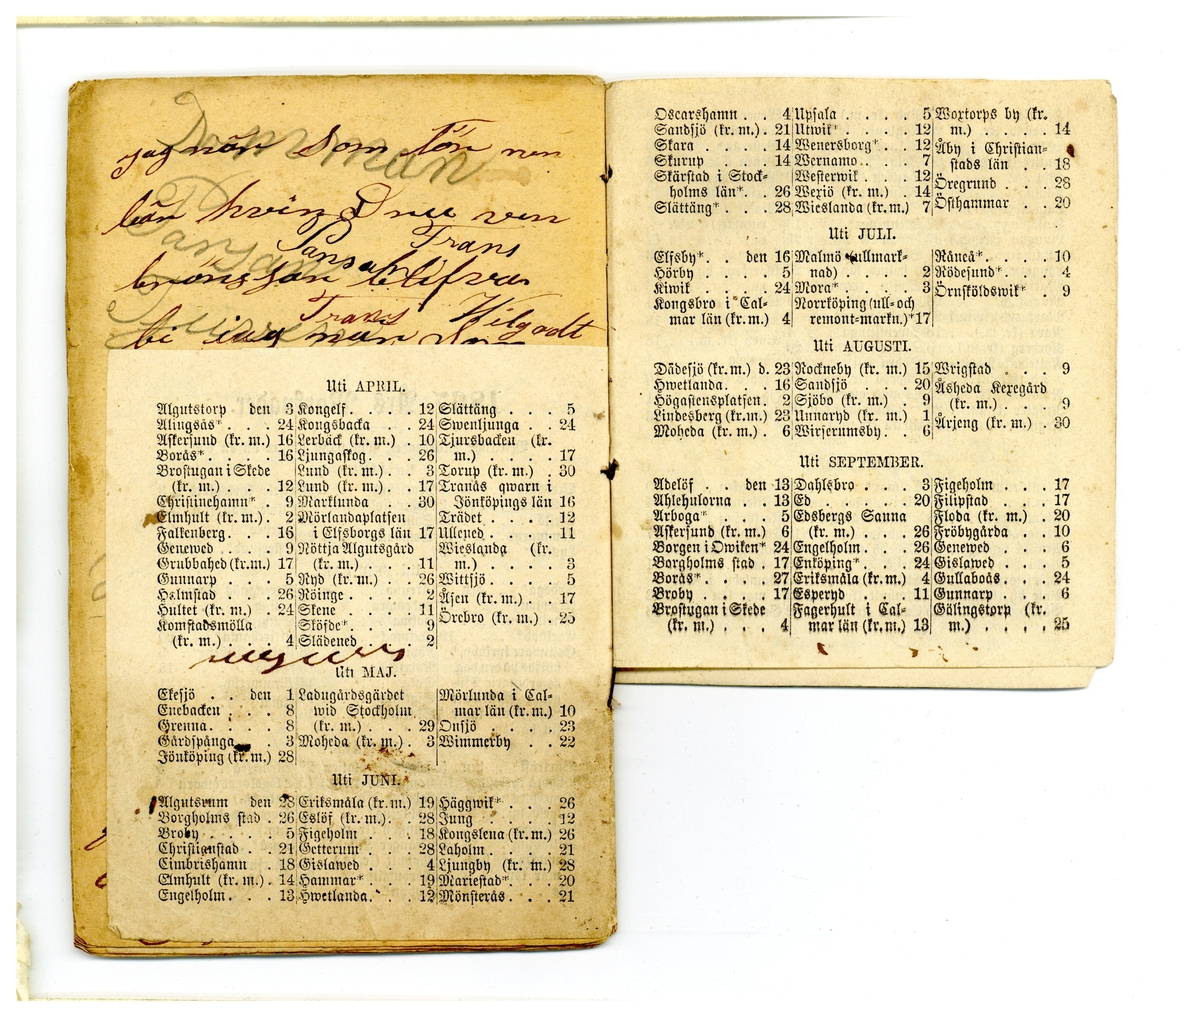 Damman
jag när som lön nen
hvin nu ven
Pansar Frans
Frans Wilgodt
Uti APRIL.
Algutstorp den 3
Alingsås* . . . 24
Askersund (kr. m.) 16
Borås* . . . . 16
Brostugan i Skede
(kr. m.) . . . 12
Christinehamn* . 9
Elmhult (kr. m.) . 2
Falkenberg. . . 16
Genewed . . . 9
Grubbahed (kr. m.) 17
Gunnarp . . . 5
Halmstad . . . 26
Hultet (kr. m.) . 24
Komstadsmölla
(kr. m.) . . . 4
Kongelf. . . . 12
Kongsbacka . . 24
Lerbäck (kr. m.) . 10
Ljungaskog. . . 26
Lund (kr. m.) . . 3
Lund (kr. m.) . . 17
Marklunda . . 30
Mörlandaplatsen
i Elfsborgs län 17
Nöttja Algutsgård
(kr. m.) . . . 11
Ryd (kr. m.) . . 26
Röinge . . . . 2
Skene . . . . 11
Sköfde* . . . . 9
Slädened . . . 2
Slättäng . . . . 5
Swenljunga . . 24
Tjursbacken (kr.
m.) . . . . . 17
Torup (kr. m.) . 30
Tranås qwarn i
Jönköpings län 16
Trädet . . . . 12
Ullened . . . . 11
Wieslanda (kr.
m.) . . . . . 3
Wittsjö . . . . 5
Åsen (kr. m.) . . 17
Örebro (kr. m.) . 25
Uti MAJ.
Ekesjö . . den 1
Enebacken . . . 8
Grenna. . . . . 8
Gårdspånga . . 3
Jönköping (kr. m.) 28
Ladugårdsgärdet
wid Stockholm
(kr. m.) . . . 29
Moheda (kr. m.) . 3
Mörlunda i Cal-
mar län (kr. m.) 10
Onsjö . . . . 23
Wimmerby . . 22
Uti JUNI.
Algutsrum den 28
Borgholms stad . 26
Broby . . . . 5
Christianstad . . 21
Cimbrishamn . . 18
Elmhult (kr. m.) . 14
Engelholm. . . . 13
Eriksmåla (kr. m.) 19
Eslöf (kr. m.) . . 28
Figeholm . . . 18
Getterum . . . 28
Gislawed . . . 4
Hammar* . . . 19
Hwetlanda. . . 12
Häggwik* . . . 26
Jung . . . . 12
Kongslena (kr. m.) 26
Laholm. . . . 21
Ljungby (kr. m.) 28
Mariestad* . . . 20
Mönsterås . . . 21
Oscarshamn . . 4
Sandsjö (kr. m.) . 21
Skara . . . . 14
Skurup . . . . 14
Skärstad i Stock-
holms län* . . 26
Slättäng* . . . 28
Upsala . . . . 5
Utwik* . . . . 12
Wenersborg* . . 12
Wernamo . . . 7
Westerwik . . . 12
Wexiö (kr. m.) . 14
Wieslanda (kr. m.) 7
Woxtorps by (kr.
m.) . . . . 14
Åby i Christian-
stads län . . 18
Öregrund . . . 28
Östhammar . . 20
Uti JULI.
Elfsby* . . den 16
Hörby . . . . 5
Kiwik . . . . 24
Kongsbro i Cal-
mar län (kr. m.) 4
Malmö (ullmark-
nad) . . . . 2
Mora* . . . . 3
Norrköping (ull- och
remont-markn.)* 17
Råneå* . . . . 10
Rödesund* . . . 4
Örnsköldswik* . 9
Uti AUGUSTI.
Dädesjö (kr. m.) d. 23
Hwetlanda. . . 16
Högastensplatsen . 2
Lindesberg (kr. m.) 23
Moheda (kr. m.) . 6
Rockneby (kr. m.) 15
Sandsjö . . . 20
Sjöbo (kr. m.) . . 9
Unnaryd (kr. m.) 1
Wirserumsby. . 6
Wrigstad . . . 9
Åsheda Kexegård
(kr. m.) . . . 9
Årjeng (kr. m.) . 30
Uti SEPTEMBER.
Adelöf . . den 13
Ahlehulorna . . 13
Arboga* . . . . 5
Askersund (kr. m.) 6
Borgen i Owiken* 24
Borgholms stad . 17
Borås* . . . . 27
Broby . . . . 17
Brostugan i Skede
(kr. m.) . . . 4
Dahlsbro . . . 3
Ed . . . . . 20
Edsbergs Sanna
(kr. m.) . . . 26
Engelholm. . . 26
Enköping* . . . 24
Eriksmåla (kr. m.) 4
Esperyd . . . 11
Fagerhult i Cal-
mar län (kr. m.) 13
Figeholm . . . 17
Filipstad . . . 17
Floda (kr. m.) . . 20
Fröbygårda . . 10
Genewed . . . 6
Gislawed . . . 5
Gullaboås . . . 24
Gunnarp . . . 6
Gälingstorp (kr.
m.) . . . . . 25